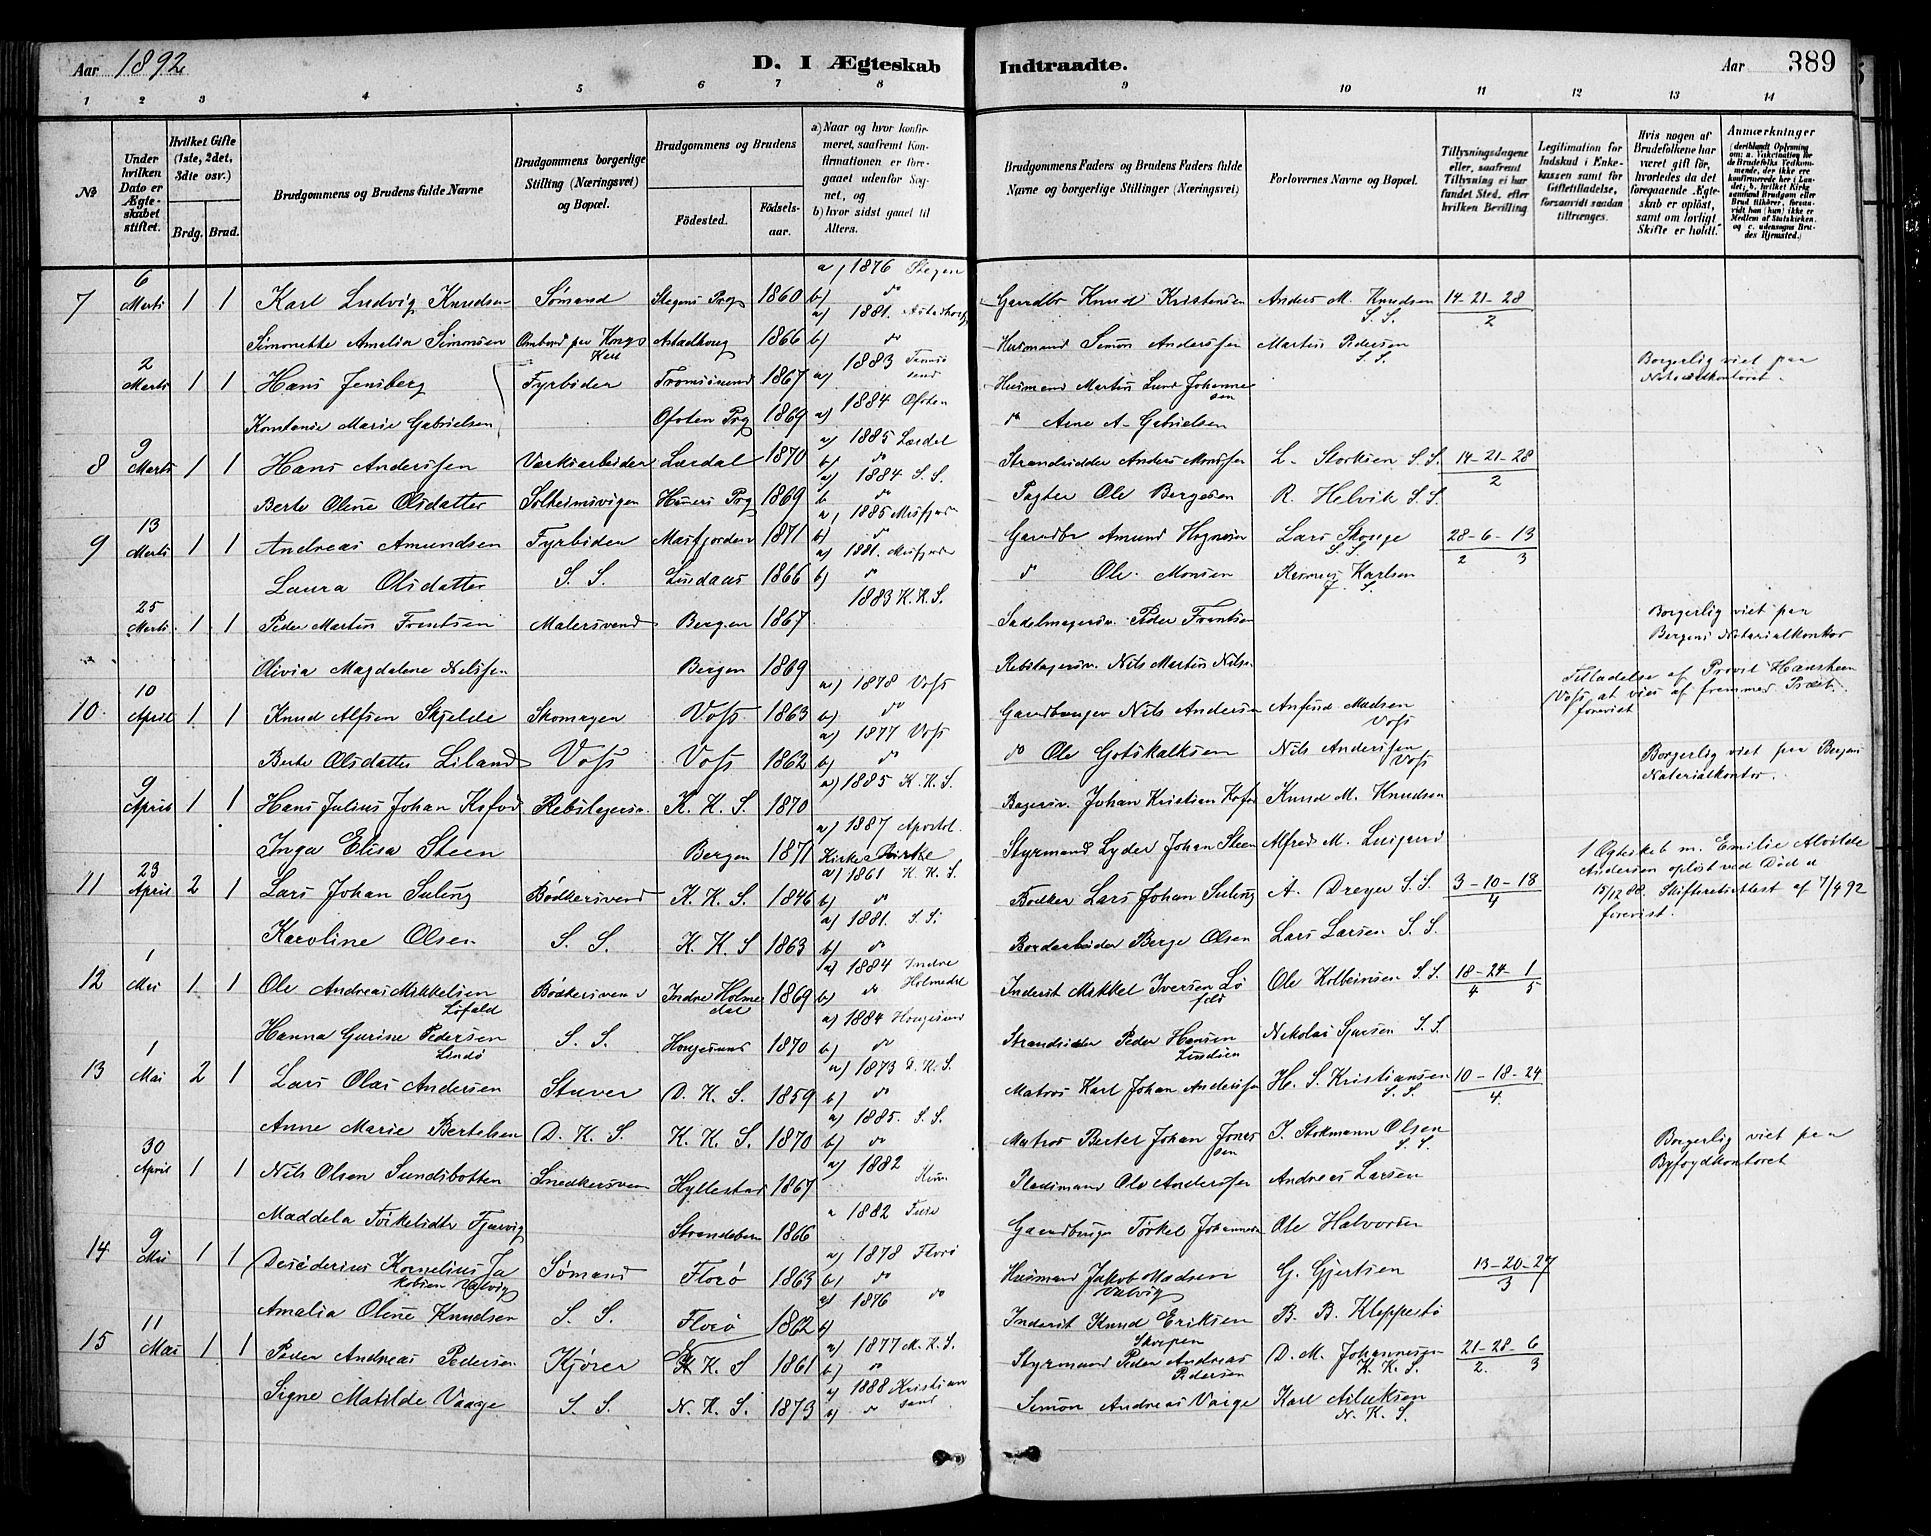 Aar 1892
D. I Ægteskab Indtraadte.
Aar 389
1 2 3 4 5 6 7 8 9 10 11 12 13 14
№
Under hvilken Dato er Ægteskabet stiftet.
Hvilket Gifte (1ste, 2det, 3die osv.)
Brdg. Brud.
Brudgommens og Brudens fulde Navne
Brudgommens borgerlige Stilling (Næringsvei) og Bopæl.
Brudgommens og Brudens
Fødested.
Fødselsaar.
a) Naar og hvor konfirmeret, saafremt Konfirmationen er foregaaet udenfor Sognet, og
b) hvor sidst gaaet til Alters.
Brudgommens Faders og Brudens Faders fulde Navne og borgerlige Stillinger (Næringsvei)
Forlovernes Navne og Bopæl.
Tillysningsdagene eller, saafremt Tillysning ei har fundet Sted, efter hvilken Bevilling
Legitimation for Indskud i Enkekassen samt for Giftetilladelse, forsaavidt saadan tiltrænges.
Hvis nogen af Brudefolkene har været gift før, hvorledes da det foregaaende Ægteskab er opløst, samt om lovligt Skifte er holdt.
Anmærkninger
7 6 Marti 1 1 Karl Ludvig Knudsen Sømand Stegens Prg 1860 a) 1876 Stegen b) do Gaardbr Knud Kristensen Anders M. Knudsen S. S. 14-21-28 2
Simonette Amelia Simonsen 1866 a) 1881. b) do Husmand Simon Anderssen Martin Pedersen S. S.
2 Marti 1 1 Hans Jensberg Fyrbøder Tromsøsund 1867 a) 1883 Tromsøsund Husmand Martin Lund Johannesen Borgerlig viet paa Notarialkontoret.
Konstanse Marie Gabrielsen Ofoten Prg 1869 a) 1884 Ofoten do Arne A. Gabrielsen
8 9 Marti 1 1 Hans Anderssen Værksarbeider Lærdal 1870 a) 1885 Lærdal b) do Strandsidder Anders Monssen L. Storksen S. S. 14-21-28 2
Berte Oline Olsdatter Solheimsvigen 1869 a) 1884 S. S. b do Pagter Ole Bergesen R. Helvik S. S.
9 13 Marti 1 1 Andreas Amundsen Fyrbøder Masfjorden 1871 a) 1885 Masfjorden b) do Gaardbr Amund Hognesen Lars Skouge S. S. 28-6-13 2 3
Laura Olsdatter S. S. Lindaas 1866 a) 1881. Masfjorden b) do do Ole Monsen Rasmus Karlsen S. S.
25 Marti 1 1 Peder Martin Frantsen Malersvend Bergen 1867 1883 K. K. S. Sadelmagersv. Peder Frantsen Borgerlig viet paa Bergens Notarialkontor
Olivia Magdalene Nilssen Bergen 1869 Rebslagersv. Nils Martin Nilsen
10. 10 April 1 1 Knud Alfsen Skjelde Skomager Voss 1863 a) 1878 Voss b) do Gaardbruger Nils Andersen Anfind Madsen Voss Tilladelse af Provst Hansteen Voss at vies af fremmed Præst forevist
Berte Olsdatter Liland Voss Voss 1862 a) 1877 Voss b) do do Ole Gotskalksen Nils Anderssen Voss
9 April 1 1 Hans Julius Johan Kofod Rebslagersv. K. K. S. 1870 a) 1885 K. K. S. Bagersv. Johan Kristian Kofod Knud M. Knudsen Borgerlig viet paa Bergens Notarialkontor.
Inga Elisa Steen Bergen 1871 a) 1887 Apostol. Kirke Styrmand Lyder Johan Steen Alfred M.
11 23 April 2 1 Lars Johan Suling Bødkersvend K. K. S. 1846 a) 1861 K. K. S. b) do Bødker Lars Johan Suling A. Dreyer S. S. 3-10-18 4 1 Ægteskab m. Emilie Alvilde Andersen opløst ved Død d 15/12 88. Skifteretsattest af 7/4 92 forevist.
Karoline Olsen S. S. K. K. S 1863 a) 1881. S. S. b) do Bordarbeider Berge Olsen Lars Larsen S. S.
12 1 Mai 1 1 Ole Andreas Mikkelsen Løfald Bødkersvend Indre Holmedal 1869 a) 1884 Indre Holmedal b) do Inderst Mikkel Iversen Løfald Ole Kolbeinsen S. S. 18-24-1 4 5
Hanna Gurine Pedersen Lindø S. S. Haugesund 1870 a) 1884 Haugesund b) do Strandsidder Peder Hansen Nikolai Sjursen S. S.
13 1 Mai 2 1 Lars Olai Andersen Stuver D. K. S. 1859 a) 1873 D. K. S. b) do Matros Karl Johan Anderssen H. S. Kristiansen S. S. 10-18-24 4.
Anne Marie Bertelsen D. K. S. K. K. S. 1870 a) 1885. S. S. b) do Matros Bertel Johan Jonassen J. Stokmann Olsen S. S.
30 April 1 1 Nils Olsen Sundsbotten Snedkersven Hyllestad 1867 a) 1882 Pladsmand Ole Anderssen Andreas Larsen Borgerlig viet paa Byfogdkontoret
Maddela Tørkelsdtr Fjærvig Strandebarm 1866 a 1882 Gaardbruger Tørkel Johannesen Ole Halvorsen
14 9 Mai 1 1 Desiderius Kornelius Jakobsen Valvig Sømand Florø 1863 a) 1878 Florø b) do Husmand Jakob Madsen Valvig G. Gjertsen 13-20-27 3
Amalia Oline Knudsen S. S. Florø 1862 a) 1876 do b) Inderst Knud Eriksen Skorpen B. B. Kleppestø
15 11 Mai 1 1 Peder Andreas Pedersen Kjører N. K. S 1861 a) 1877 N. K. S. b) do Styrmand Peder Andreas Pedersen D. M. Johannesen K. K. S. 21-28-6 2. 3
Signe Matilde Vaage S. S. N. K. S. 1873 a) 1888 Kristiansand do Simon Andreas Vaage Karl N. K. S.